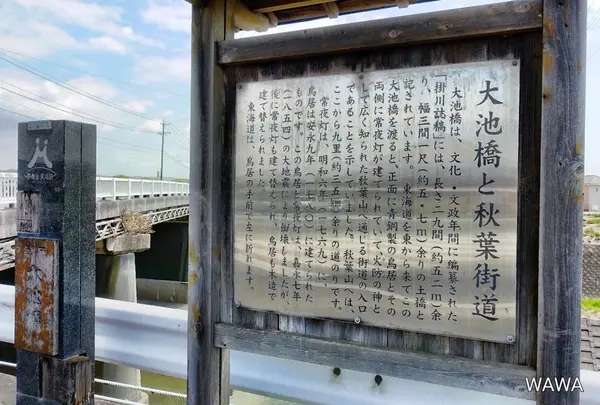 大池橋と秋葉街道
大池橋は、文化・文政年間に編纂された
『掛川誌稿』には、長さ二九間(約五二m)余
り、幅三間一尺(約五・七m)余りの土橋と
記されています。東海道を東から来てこの
大池橋を渡ると、正面に青銅製の鳥居とその
両側に常夜灯が建てられていて、火防の神と
して広く知られた秋葉山へ通じる街道の入口
であることを示していました。秋葉山へは、
ここから九里(約三五㎞)余りの道のりです。
常夜灯は、明和六年(一七六九)に、
鳥居は安永九年(一七八〇)に建てられた
ものです。この鳥居と常夜灯は、嘉永七年
(一八五四)の大地震により倒壊しましたが、
後に常夜灯も建て替えられ、鳥居も木造で
建て替えられました。
東海道は、鳥居の手前で左に折れます。
WAWA